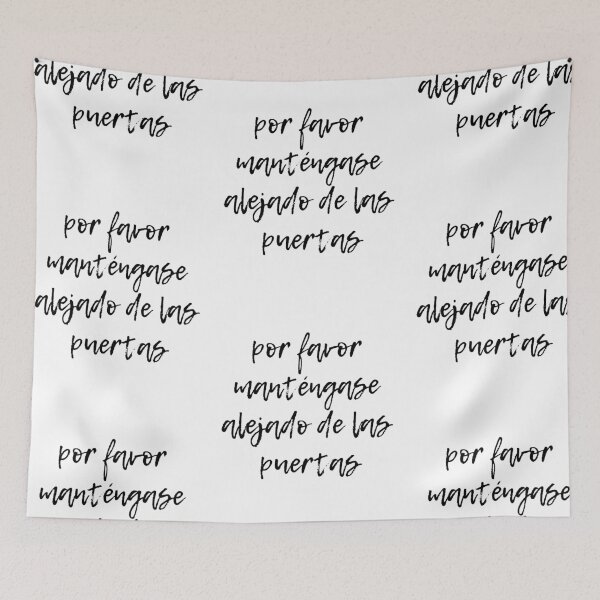 alejado de las
puertas
por favor
manténgase
alejado de las
puertas
por favor
manténgase
por favor
manténgase
alejado de las
puertas
por favor
manténgase
alejado de las
puertas
alejado de las
puertas
por favor
manténgase
alejado de las
puertas
por favor
manténgase